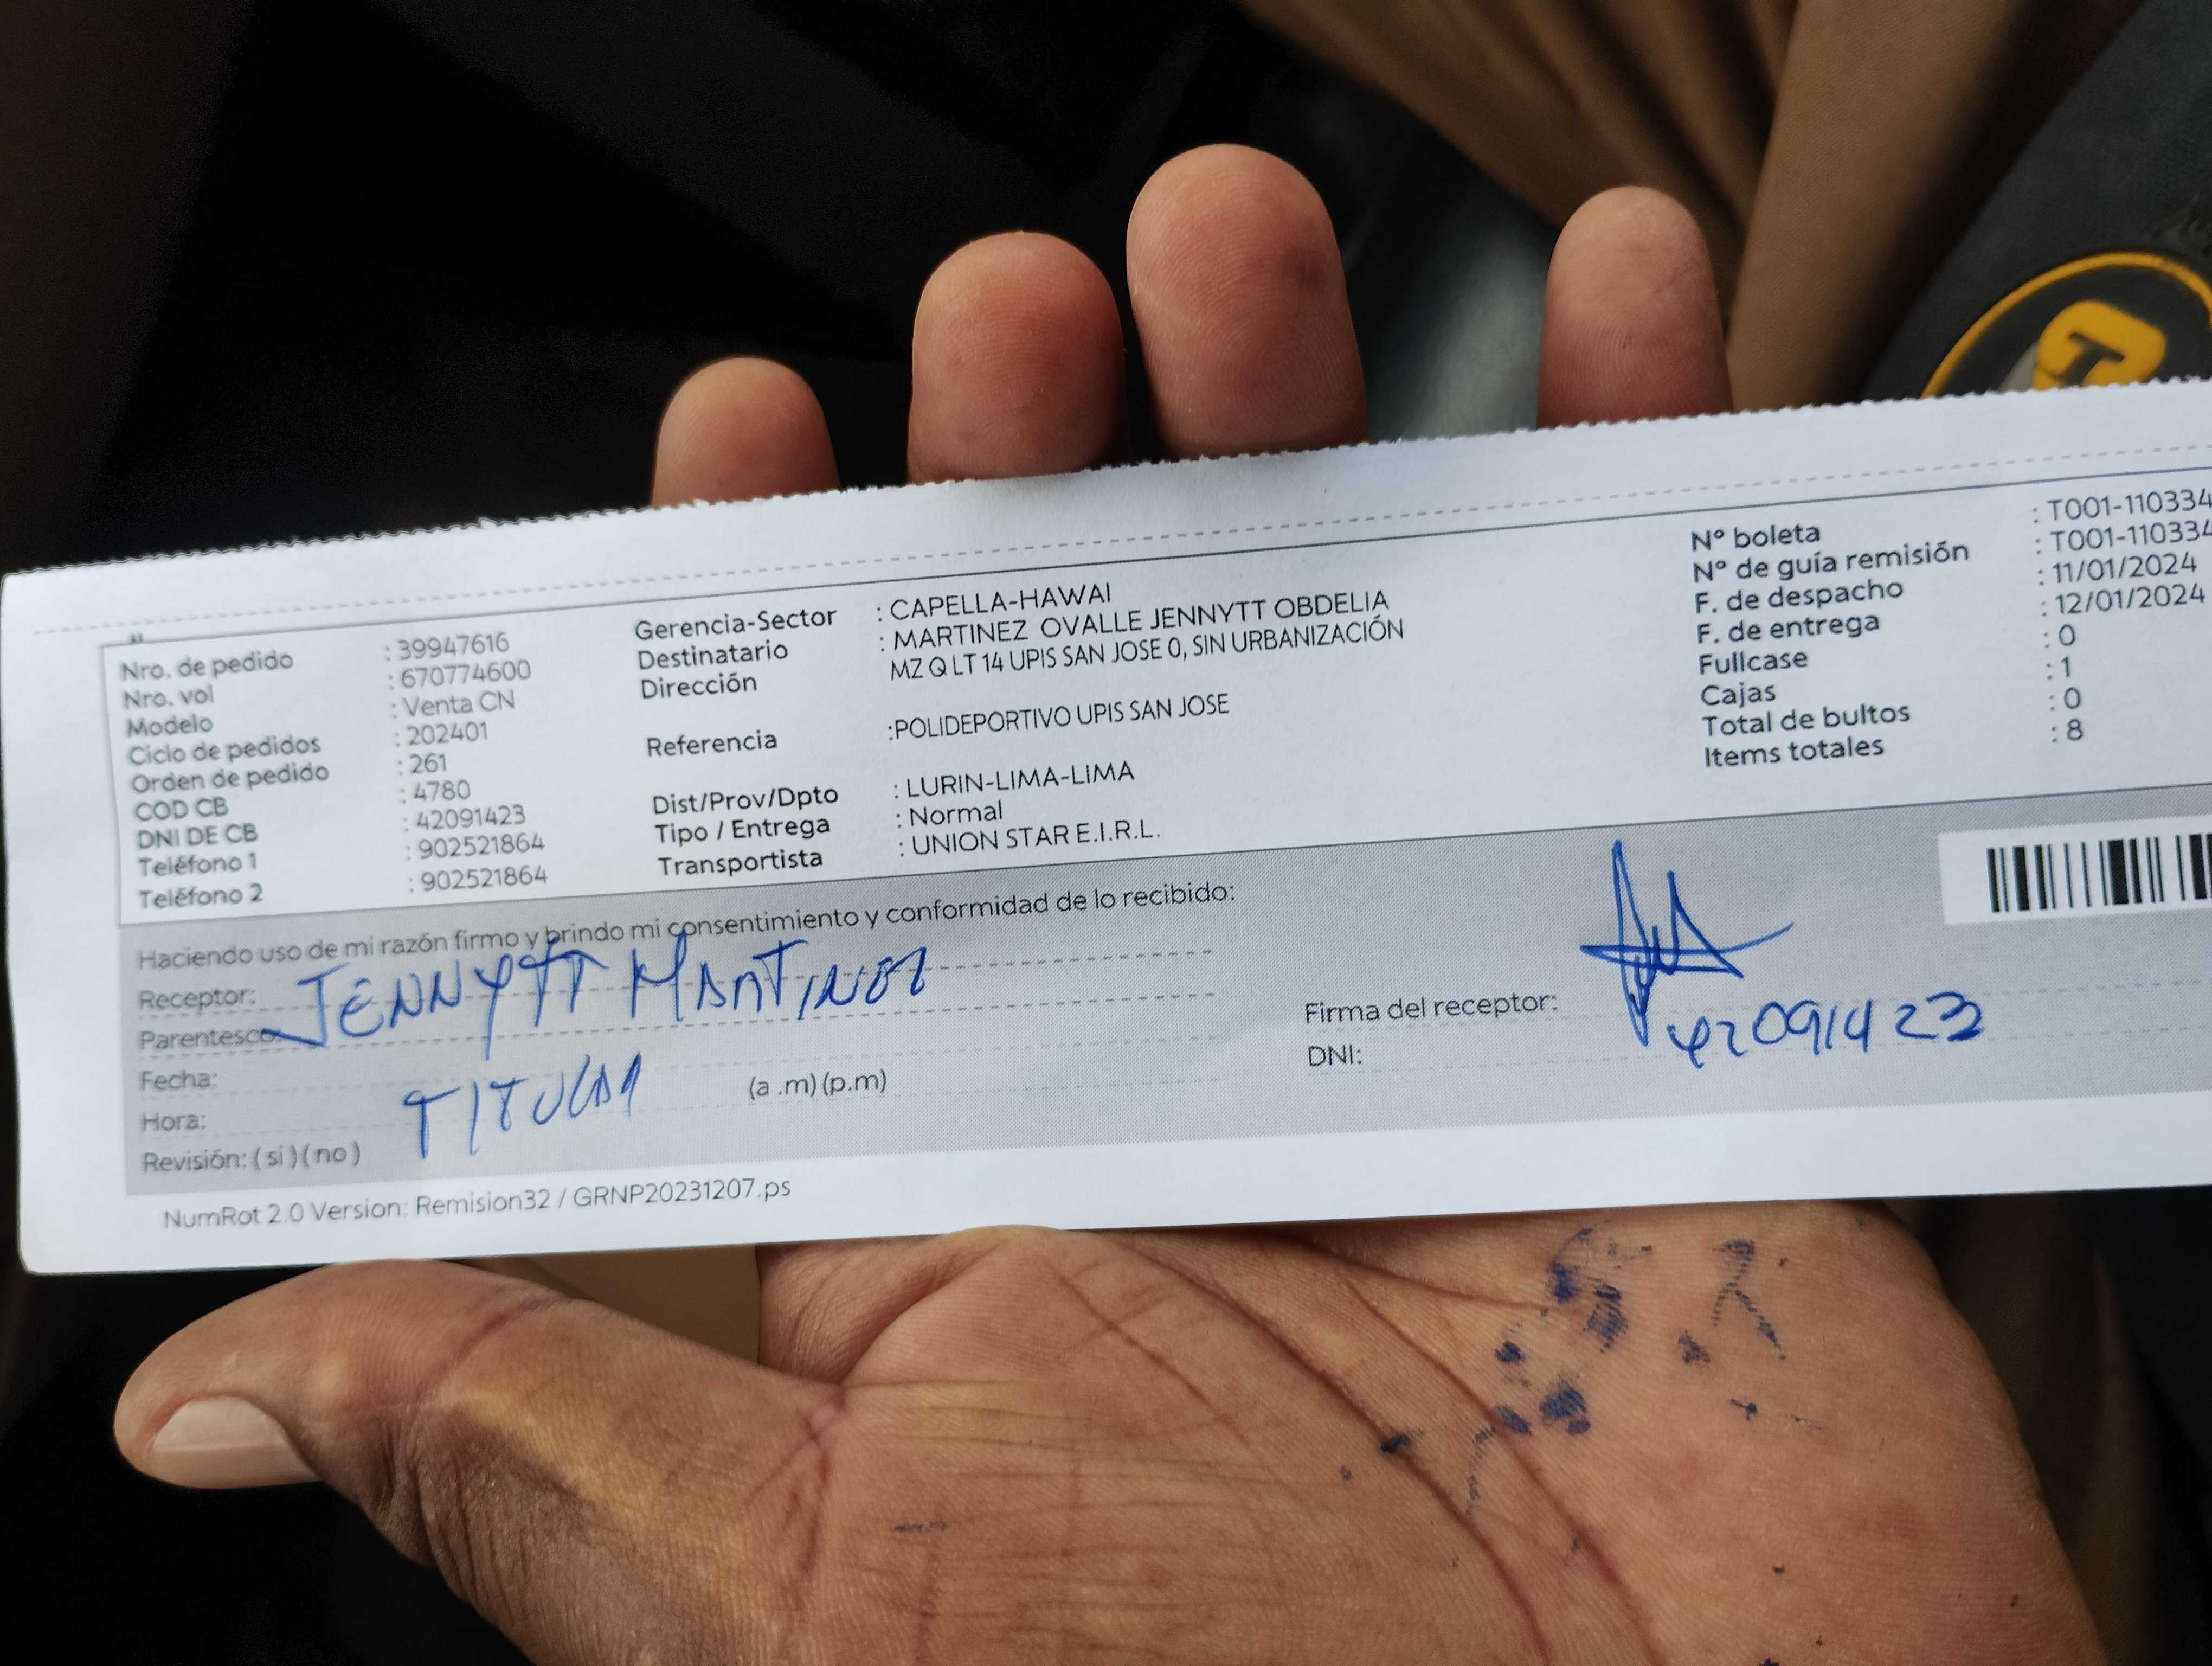 Nro. de pedido : 39947616
Nro. vol : 670774600
Modelo : Venta CN
Ciclo de pedidos : 202401
Orden de pedido : 261
COD CB : 4780
DNI DE CB : 42091423
Teléfono 1 : 902521864
Teléfono 2 : 902521864
Gerencia-Sector : CAPELLA-HAWAI
Destinatario : MARTINEZ OVALLE JENNYTT OBDELIA
Dirección MZ Q LT 14 UPIS SAN JOSE 0, SIN URBANIZACIÓN
Referencia :POLIDEPORTIVO UPIS SAN JOSE
Dist/Prov/Dpto : LURIN-LIMA-LIMA
Tipo / Entrega : Normal
Transportista : UNION STAR E.I.R.L.
Nº boleta : T001-110334
Nº de guía remisión : T001-110334
F. de despacho : 11/01/2024
F. de entrega : 12/01/2024
Fullcase : 0
Cajas : 1
Total de bultos : 0
Items totales : 8
Haciendo uso de mi razón firmo y brindo mi consentimiento y conformidad de lo recibido:
Receptor: JENNYTT MARTINEZ
Parentesco:
Fecha: TITULAR
Hora: (a .m) (p.m)
Revisión: ( si ) ( no )
Firma del receptor:
DNI: 42091423
NumRot 2.0 Version: Remision32 / GRNP20231207.ps